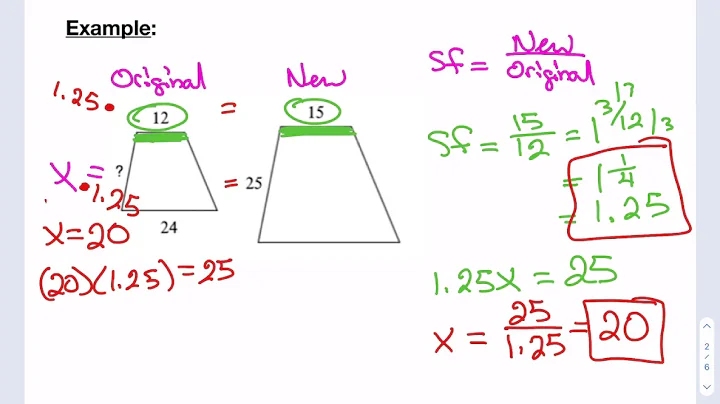 Example:
Original
New
1.25 •
12
=
15
x =
?
• 1.25
= 25
24
x = 20
(20)(1.25) = 25
Sf = New/Original
Sf = 15/12 = 1 3/12
= 1 1/4
= 1.25
1.25x = 25
x = 25/1.25 = 20
2
/
6